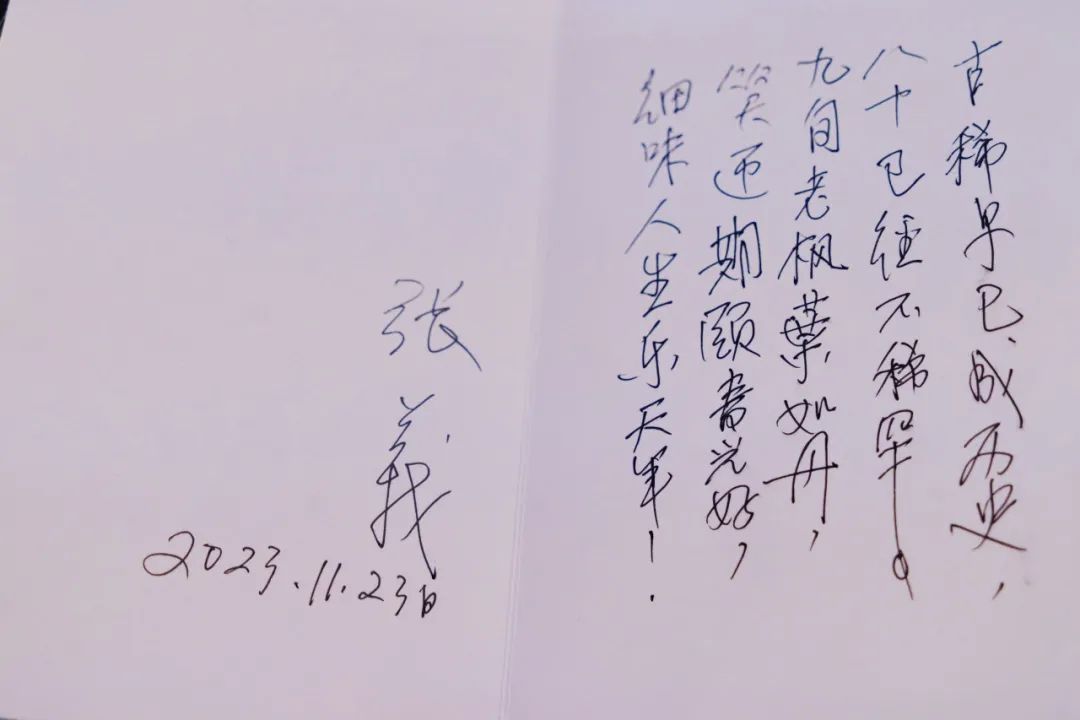 古稀早已成历史，
八十已经不稀罕。
九旬老枫葉如丹，
笑迎期颐春光好，
细味人生乐天年！
张義
2023.11.23日